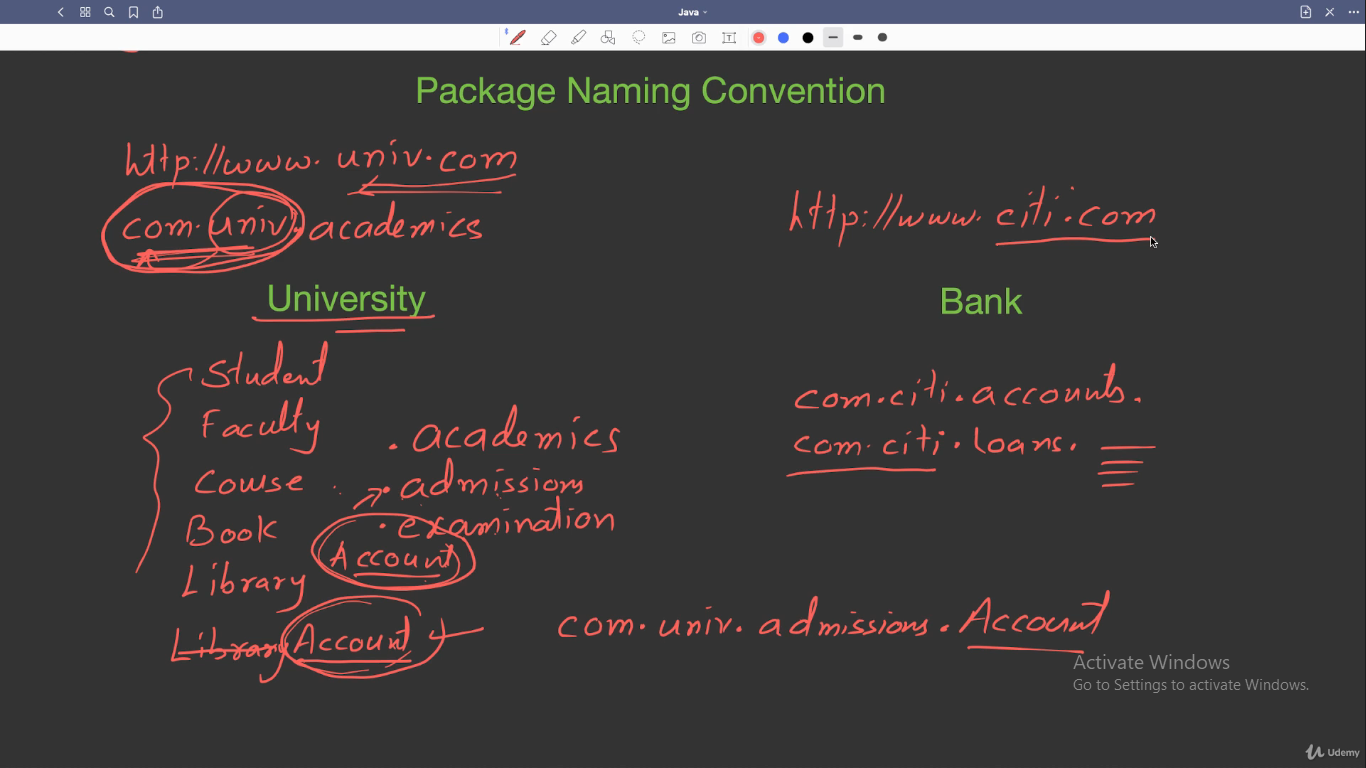 Java
Package Naming Convention
http://www.univ.com
com.univ.academics
http://www.citi.com
University
Bank
Student
Faculty
Course
Book
Library
Library Account
.academics
.admissions
.examination
Account
com.citi.accounts.
com.citi.loans.
com.univ.admissions.Account
Activate Windows
Go to Settings to activate Windows.
Udemy